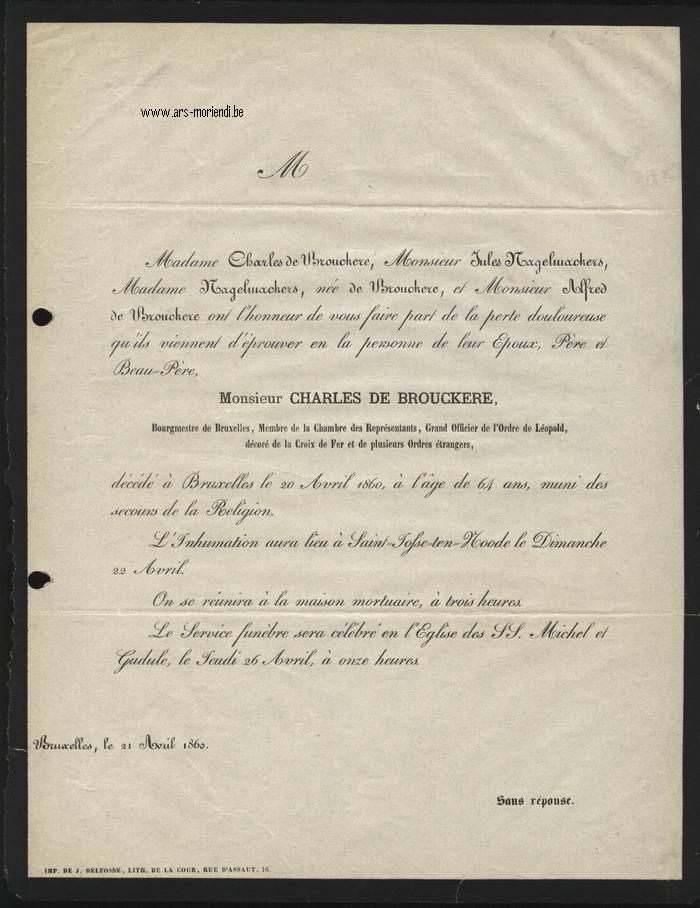 www.ars-moriendi.be
M
Madame Charles de Brouckere, Monsieur Jules Nagelmackers,
Madame Nagelmackers, née de Brouckere, et Monsieur Alfred
de Brouckere ont l'honneur de vous faire part de la perte douloureuse
qu'ils viennent d'éprouver en la personne de leur Epoux, Père et
Beau-Père,
Monsieur CHARLES DE BROUCKERE,
Bourgmestre de Bruxelles, Membre de la Chambre des Représentants, Grand Officier de l'Ordre de Léopold,
décoré de la Croix de Fer et de plusieurs Ordres étrangers,
décédé à Bruxelles le 20 Avril 1860, à l'âge de 64 ans, muni des
secours de la Religion.
L'Inhumation aura lieu à Saint-Josse-ten-Noode le Dimanche
22 Avril.
On se réunira à la maison mortuaire, à trois heures.
Le Service funèbre sera célébré en l'Eglise des SS. Michel et
Gudule, le Jeudi 26 Avril, à onze heures.
Bruxelles, le 21 Avril 1860.
Sans réponse.
IMP. DE J. DELFOSSE, LITH. DE LA COUR, RUE D'ASSAUT, 16.